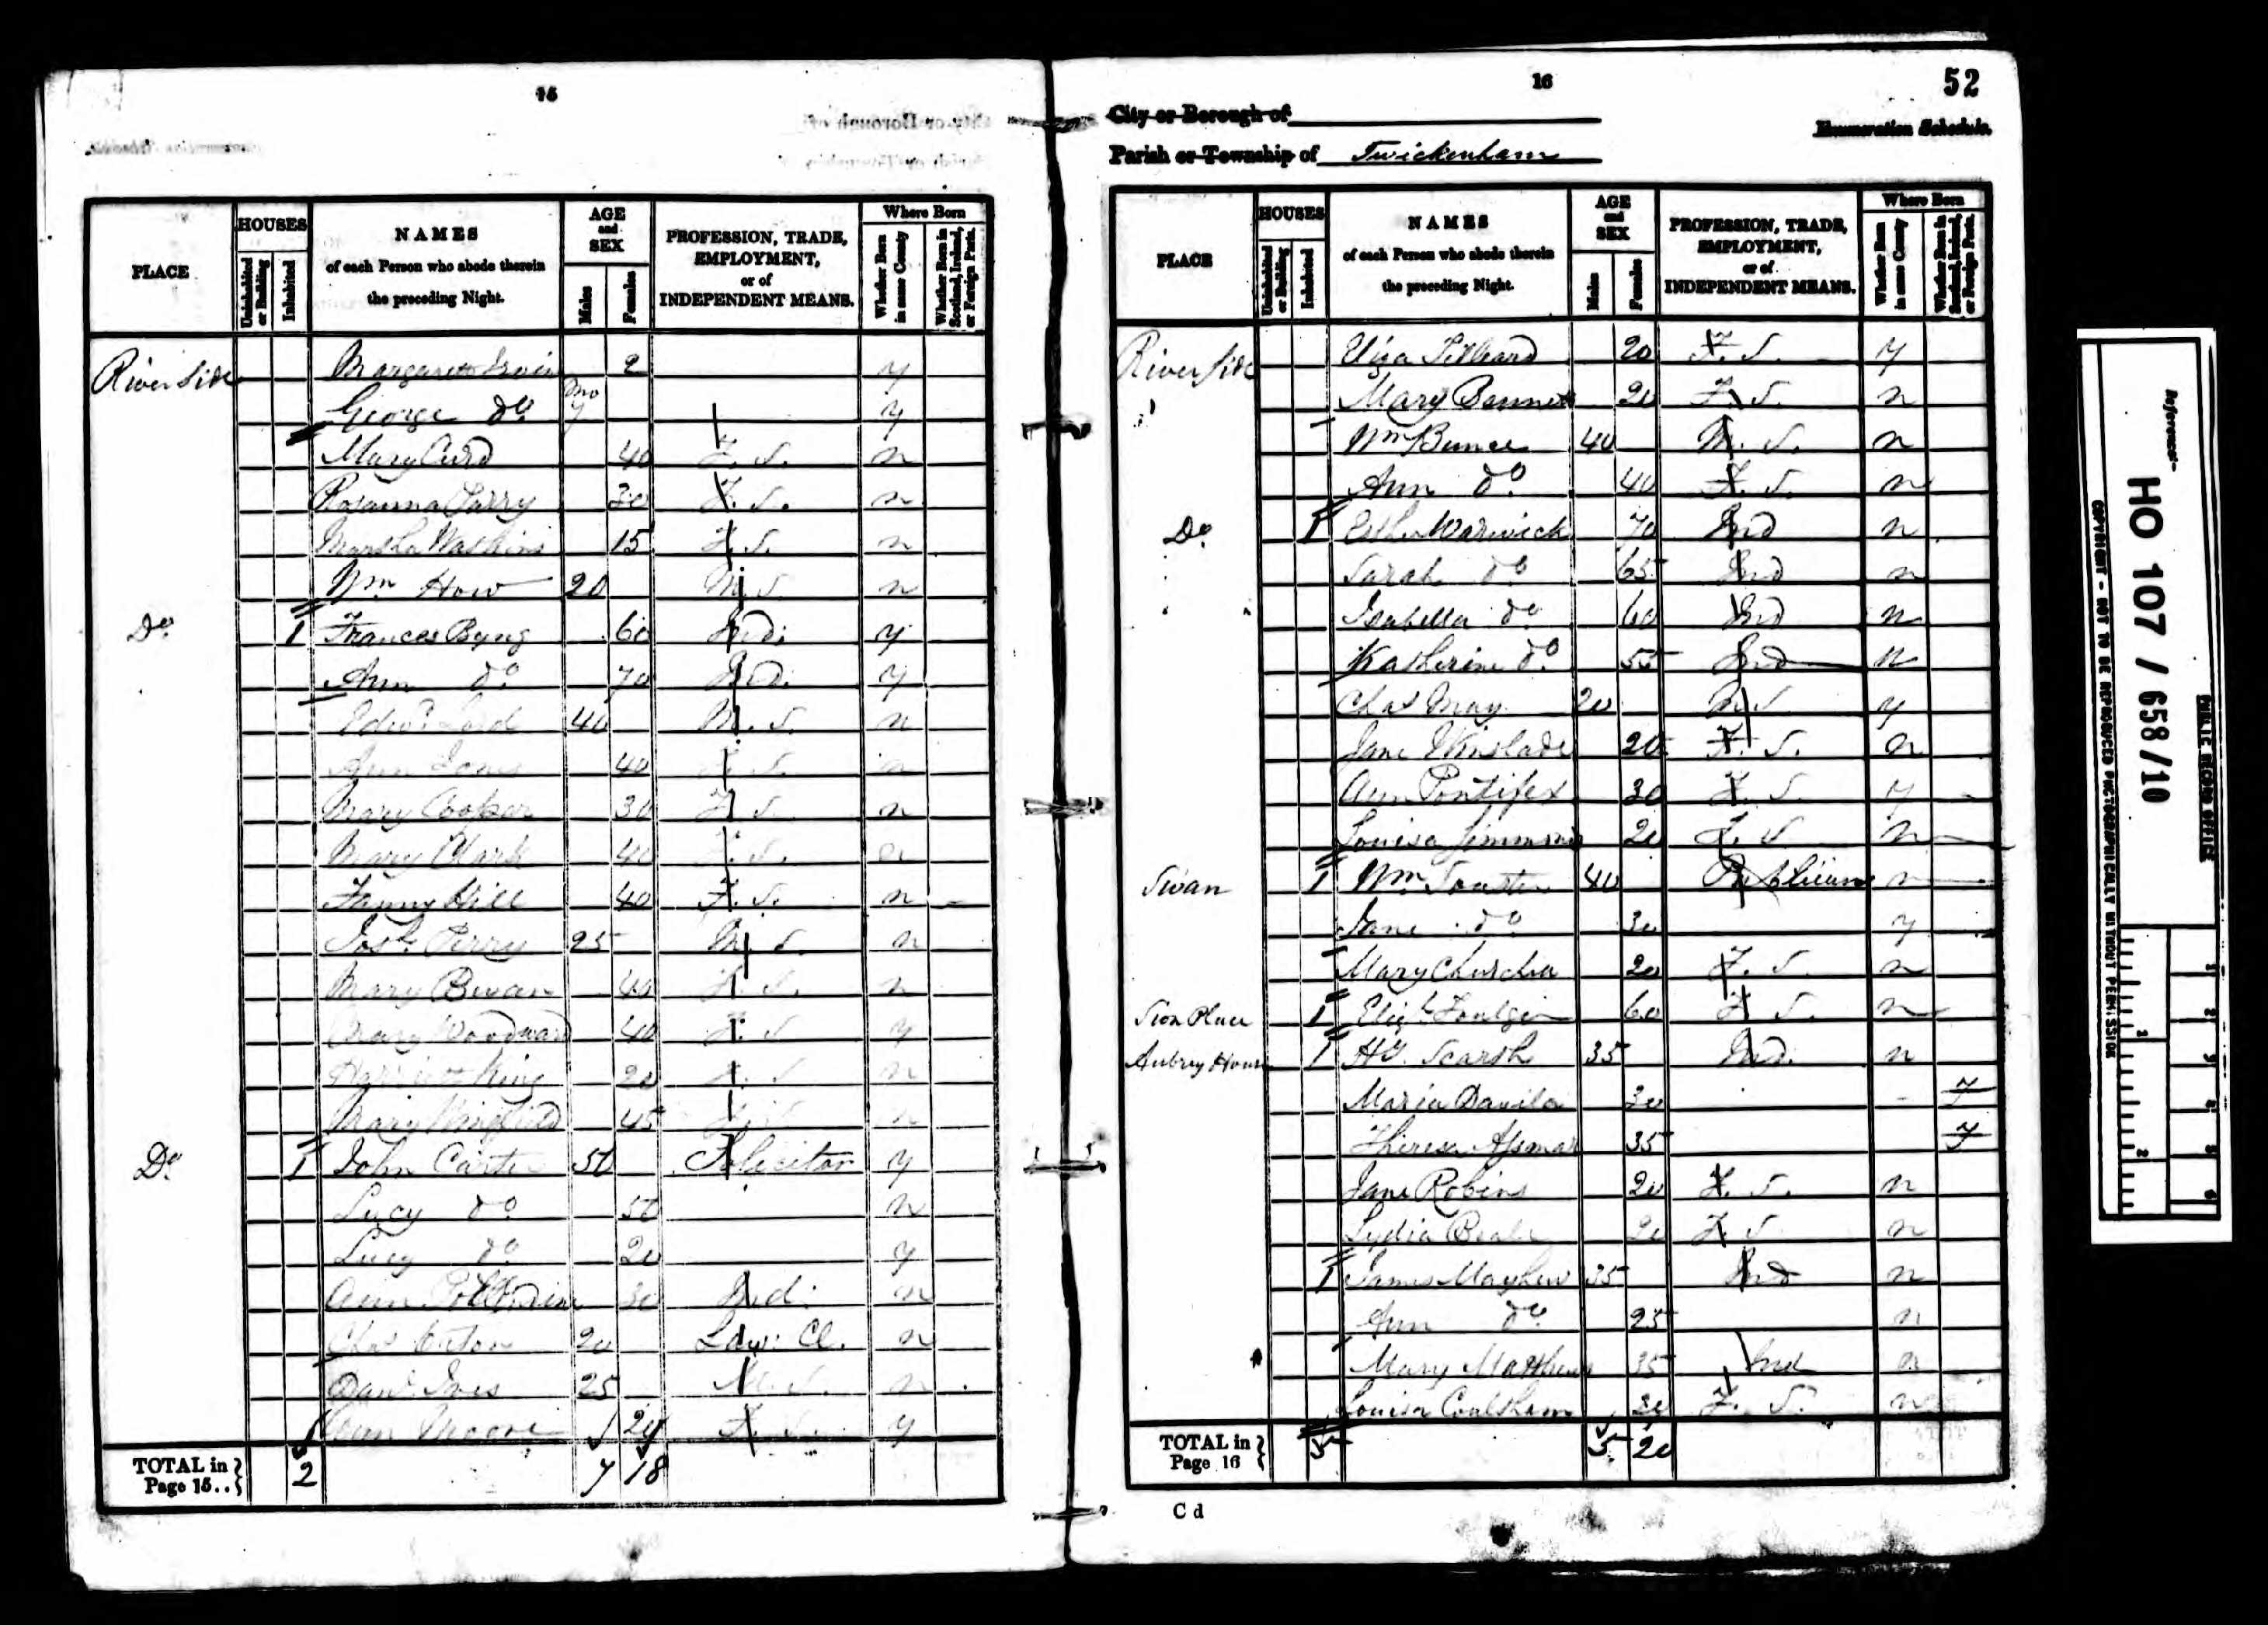 15
PLACE
HOUSES
Uninhabited or Building
Inhabited
NAMES
of each Person who abode therein
the preceding Night.
AGE
and
SEX
Males
Females
PROFESSION, TRADE,
EMPLOYMENT,
or of
INDEPENDENT MEANS.
Where Born
Whether Born in same County
Whether Born in Scotland, Ireland, or Foreign Parts.
River Side Margarett 2 y
George do mo y
Mary Curd 40 F. S. n
Rosanna Parry 30 F. S. n
Martha Watkins 15 F. S. n
Wm How 20 M. S. n
Do 1 Frances Byng 60 Ind: y
Ann do 70 Ind: y
Edwd Lord 40 M. S. n
Ann Jones 40 F. S. n
Mary Cooper 30 F. S. n
Mary Clark 40 F. S. n
Fanny Hill 40 F. S. n
Josh Perry 25 M. S. n
Mary Bevan 40 F. S. n
Mary Woodward 40 F. S. y
Harriott King 20 F. S. n
Mary Wingfield 45 F. S. n
Do 1 John Carter 50 Solicitor y
Lucy do 50 n
Lucy do 20 y
Ann 30 Ind: n
Chas 20 Law: Cl. n
Danl Ives 25 M. S. n
Ann Moore 20 F. S. y
TOTAL in
Page 15.. } 2 7 18
16
52
City or Borough of
Enumeration Schedule.
Parish or Township of Twickenham
PLACE
HOUSES
Uninhabited or Building
Inhabited
NAMES
of each Person who abode therein
the preceding Night.
AGE
and
SEX
Males
Females
PROFESSION, TRADE,
EMPLOYMENT,
or of
INDEPENDENT MEANS.
Where Born
Whether Born in same County
Whether Born in Scotland, Ireland, or Foreign Parts.
River Side Eliza 20 F. S. y
Mary Bennett 20 F. S. n
Wm Bunce 40 M. S. n
Ann do 40 F. S. n
Do 1 Esther Warwick 70 Ind n
Sarah do 65 Ind n
Isabella do 60 Ind n
Katherine do 55 Ind n
Chas May 20 M. S. y
Jane Winslade 20 F. S. n
Ann Pontifex 30 F. S. y
Louisa Simmons 20 F. S. n
Swan 1 Wm 40 Publican n
Jane do 30 y
Mary Churchill 20 F. S. n
Sion Place 1 Elizh 60 F. S. n
Aubrey House 1 35 Ind. n
Maria Davila 30 F
Theresa 35 F
Jane Robins 20 F. S. n
Lydia Beale 20 F. S. n
1 James Mayhew 35 Ind n
Ann do 25 n
Mary Matthews 35 Ind n
Louisa Coulsham 20 F. S. n
TOTAL in
Page 16 } 5 5 20
C d
Reference:-
HO 107 / 658/10
PUBLIC RECORD OFFICE
COPYRIGHT - NOT TO BE REPRODUCED PHOTOGRAPHICALLY WITHOUT PERMISSION